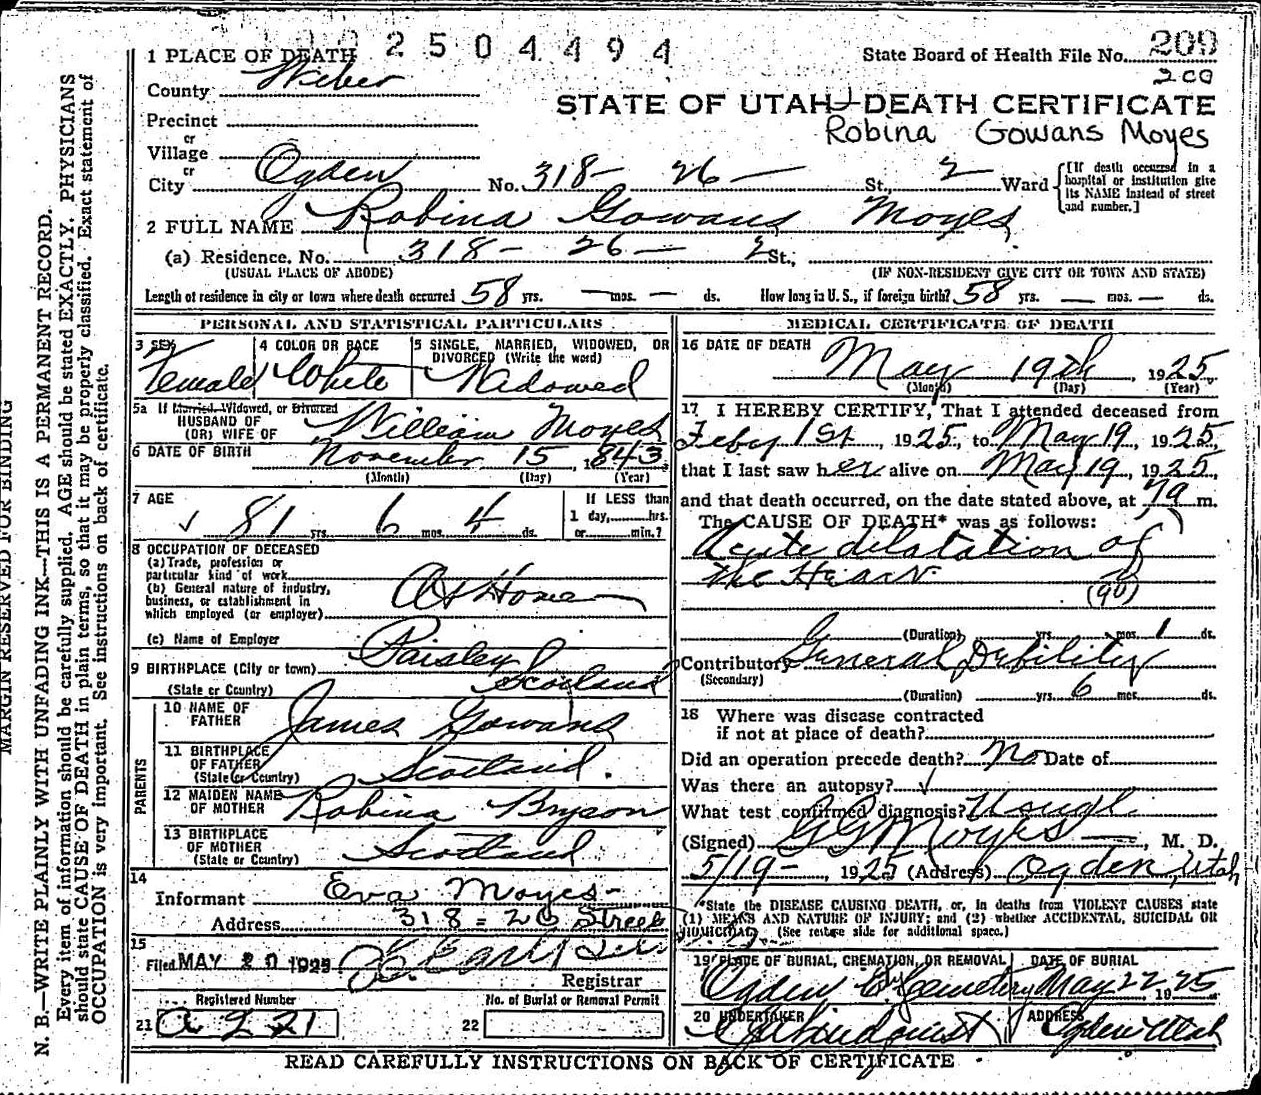 2504494
1 PLACE OF DEATH
State Board of Health File No. 209
200
County Weber
STATE OF UTAH—DEATH CERTIFICATE
Precinct
Robina Gowans Moyes
or
Village
or
City Ogden No. 318- 26 — St., 2 Ward
[If death occurred in a hospital or institution give its NAME instead of street and number.]
2 FULL NAME Robina Gowans Moyes
(a) Residence. No. 318- 26 — 2 St.,
(USUAL PLACE OF ABODE) (IF NON-RESIDENT GIVE CITY OR TOWN AND STATE)
Length of residence in city or town where death occurred 58 yrs. — mos. — ds. How long in U. S., if foreign birth? 58 yrs. — mos. — ds.
PERSONAL AND STATISTICAL PARTICULARS
3 SEX 4 COLOR OR RACE 5 SINGLE, MARRIED, WIDOWED, OR DIVORCED (Write the word)
Female White Widowed
5a If Married, Widowed, or Divorced
HUSBAND OF
(OR) WIFE OF William Moyes
6 DATE OF BIRTH November 15, 1843
(Month) (Day) (Year)
7 AGE
81 yrs. 6 mos. 4 ds.
If LESS than
1 day,........hrs.
or........min.?
8 OCCUPATION OF DECEASED
(a) Trade, profession or
particular kind of work
(b) General nature of industry,
business, or establishment in
which employed (or employer)
At Home
(c) Name of Employer
9 BIRTHPLACE (City or town) Paisley
(State or Country) Scotland
PARENTS
10 NAME OF
FATHER James Gowans
11 BIRTHPLACE
OF FATHER
(State or Country) Scotland.
12 MAIDEN NAME
OF MOTHER Robina Bryson
13 BIRTHPLACE
OF MOTHER
(State or Country) Scotland
14
Informant Eva Moyes-
Address 318 = 26 Street
15
Filed MAY 20 1925
Registrar
Registered Number No. of Burial or Removal Permit
21 a 221 22
MEDICAL CERTIFICATE OF DEATH
16 DATE OF DEATH
May 19th, 1925
(Month) (Day) (Year)
17 I HEREBY CERTIFY, That I attended deceased from
Feby 1st, 1925, to May 19, 1925,
that I last saw her alive on May 19, 1925,
and that death occurred, on the date stated above, at 7a m.
The CAUSE OF DEATH* was as follows:
Acute dilatation of
the Heart
(90)
(Duration) yrs. mos. 1 ds.
Contributory General Debility
(Secondary)
(Duration) yrs. 6 mos. ds.
18 Where was disease contracted
if not at place of death?
Did an operation precede death? No Date of
Was there an autopsy?
What test confirmed diagnosis?
(Signed) G G Moyes, M. D.
5/19-, 1925 (Address) Ogden, Utah
*State the DISEASE CAUSING DEATH, or, in deaths from VIOLENT CAUSES state
(1) MEANS AND NATURE OF INJURY; and (2) whether ACCIDENTAL, SUICIDAL OR
HOMICIDAL. (See reverse side for additional space.)
19 PLACE OF BURIAL, CREMATION, OR REMOVAL DATE OF BURIAL
Ogden City Cemetery May 22 1925
20 UNDERTAKER ADDRESS
Lindquist Ogden Utah
READ CAREFULLY INSTRUCTIONS ON BACK OF CERTIFICATE
MARGIN RESERVED FOR BINDING
N. B.—WRITE PLAINLY WITH UNFADING INK—THIS IS A PERMANENT RECORD.
Every item of information should be carefully supplied. AGE should be stated EXACTLY. PHYSICIANS
should state CAUSE OF DEATH in plain terms, so that it may be properly classified. Exact statement of
OCCUPATION is very important. See instructions on back of certificate.